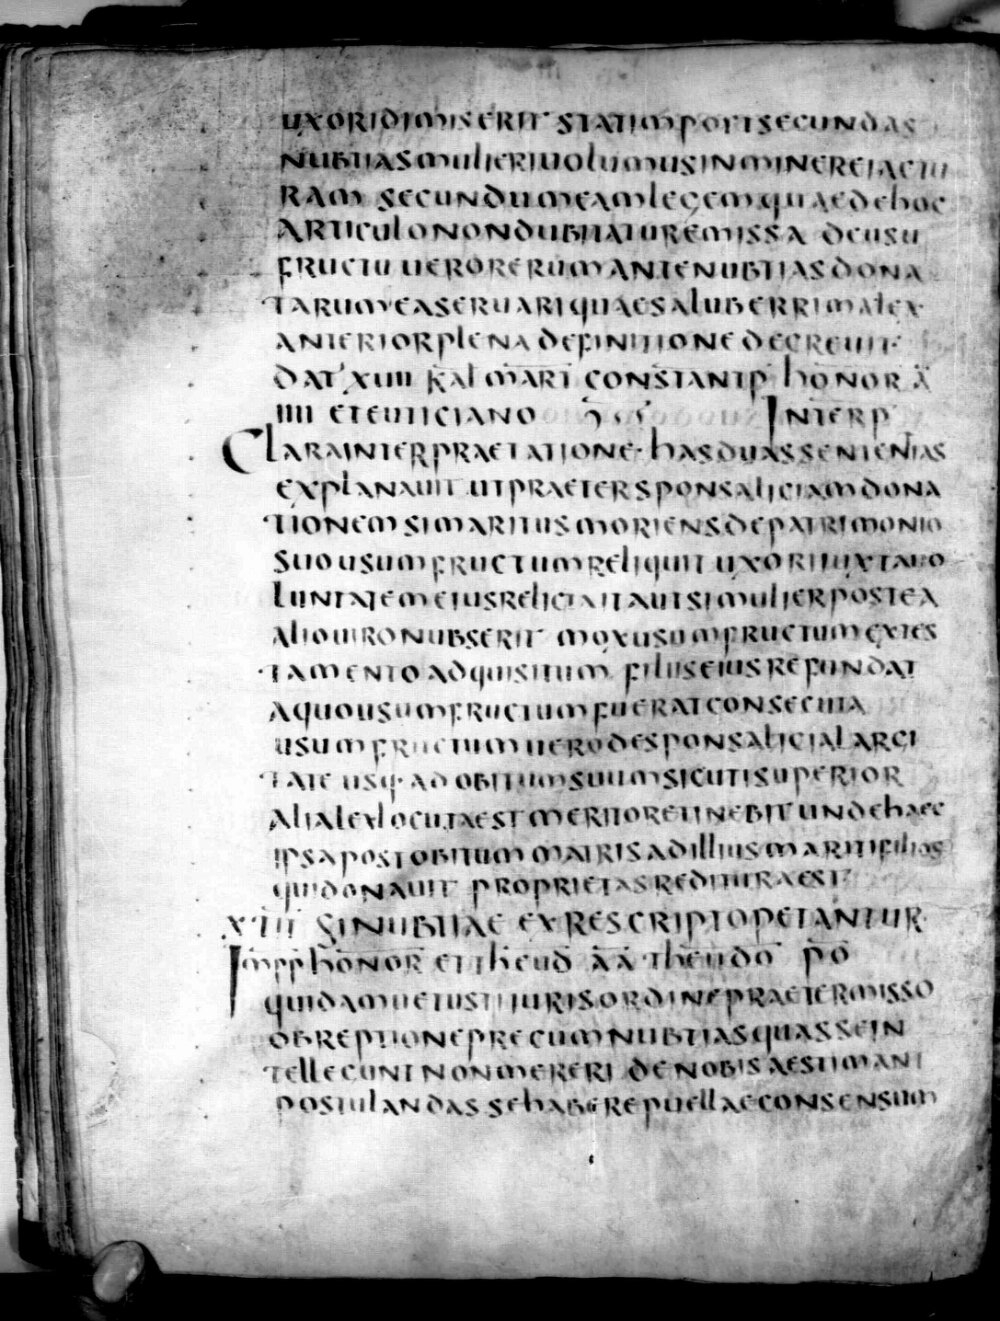 uxori dimiserit statim post secundas
nubtias mulieri uolumus inminere iactu
ram secundum eam legem quae de hoc
articulo non dubitatur emissa de usu
fructu uero rerum ante nubtias dona
tarum ea seruari quae saluberrima lex
anterior plena definitione decreuit·
dat xiiii kal mart constantp honor ā
iiii et eutĭciano Interp
Clara interpraetatione· has duas sentenĭas
explanauit ut praeter sponsaliciam dona
tionem si maritus moriens de patrimonio
suo usum fructum reliquit uxori iuxta uo
luntatem eius relicta it aut si mulier postea
alio uiro nubserit mox usum fructum ex tes
tamento adquisitum filiis eius refundat
a quo usum fructum fuerat consecuta
usum fructum uero desponsalicia larci
tate usq· ad obitum suum sicuti superior
alia lex locuta est merito retinebit unde haec
ipsa post obitum matris ad illius mariti filios
qui donauit proprietas reditura est
xiii Si nubtiae ex rescripto petantur·
Impp honor et theud āā theudo p̄o
quidam uetusti iuris ordine praetermisso
obreptione precum nubtias quas se in
tellecunt non mereri de nobis aestimant
postulandas se habere puellae consensum